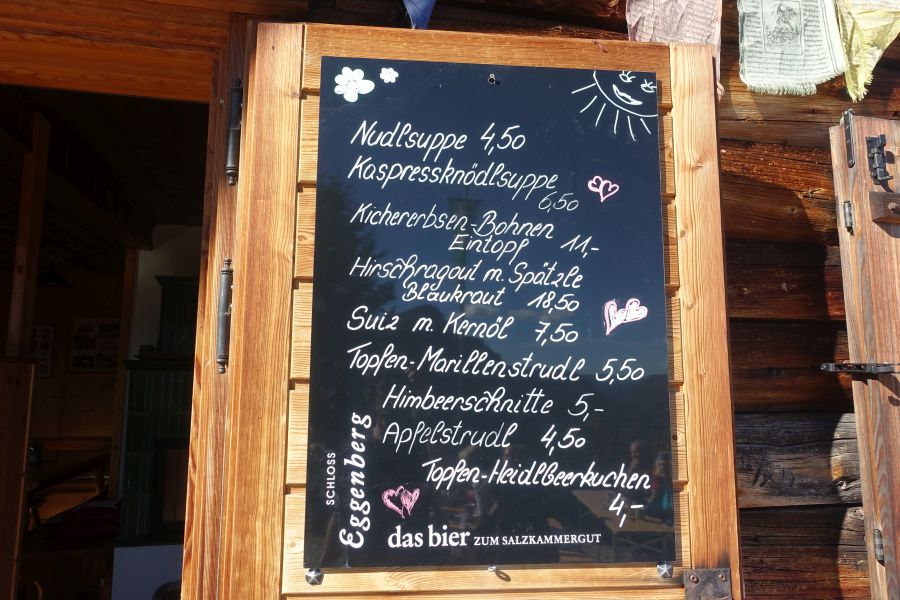 Nudlsuppe 4,50
Kaspressknödlsuppe
6,50
Kichererbsen-Bohnen
Eintopf 11,-
Hirschragout m. Spätzle
Blaukraut 18,50
Suiz m. Kernöl 7,50
Topfen-Marillenstrudl 5,50
Himbeerschnitte 5,-
Apfelstrudl 4,50
Topfen-Heidlbeerkuchen
4,-
SCHLOSS
Eggenberg
das bier ZUM SALZKAMMERGUT